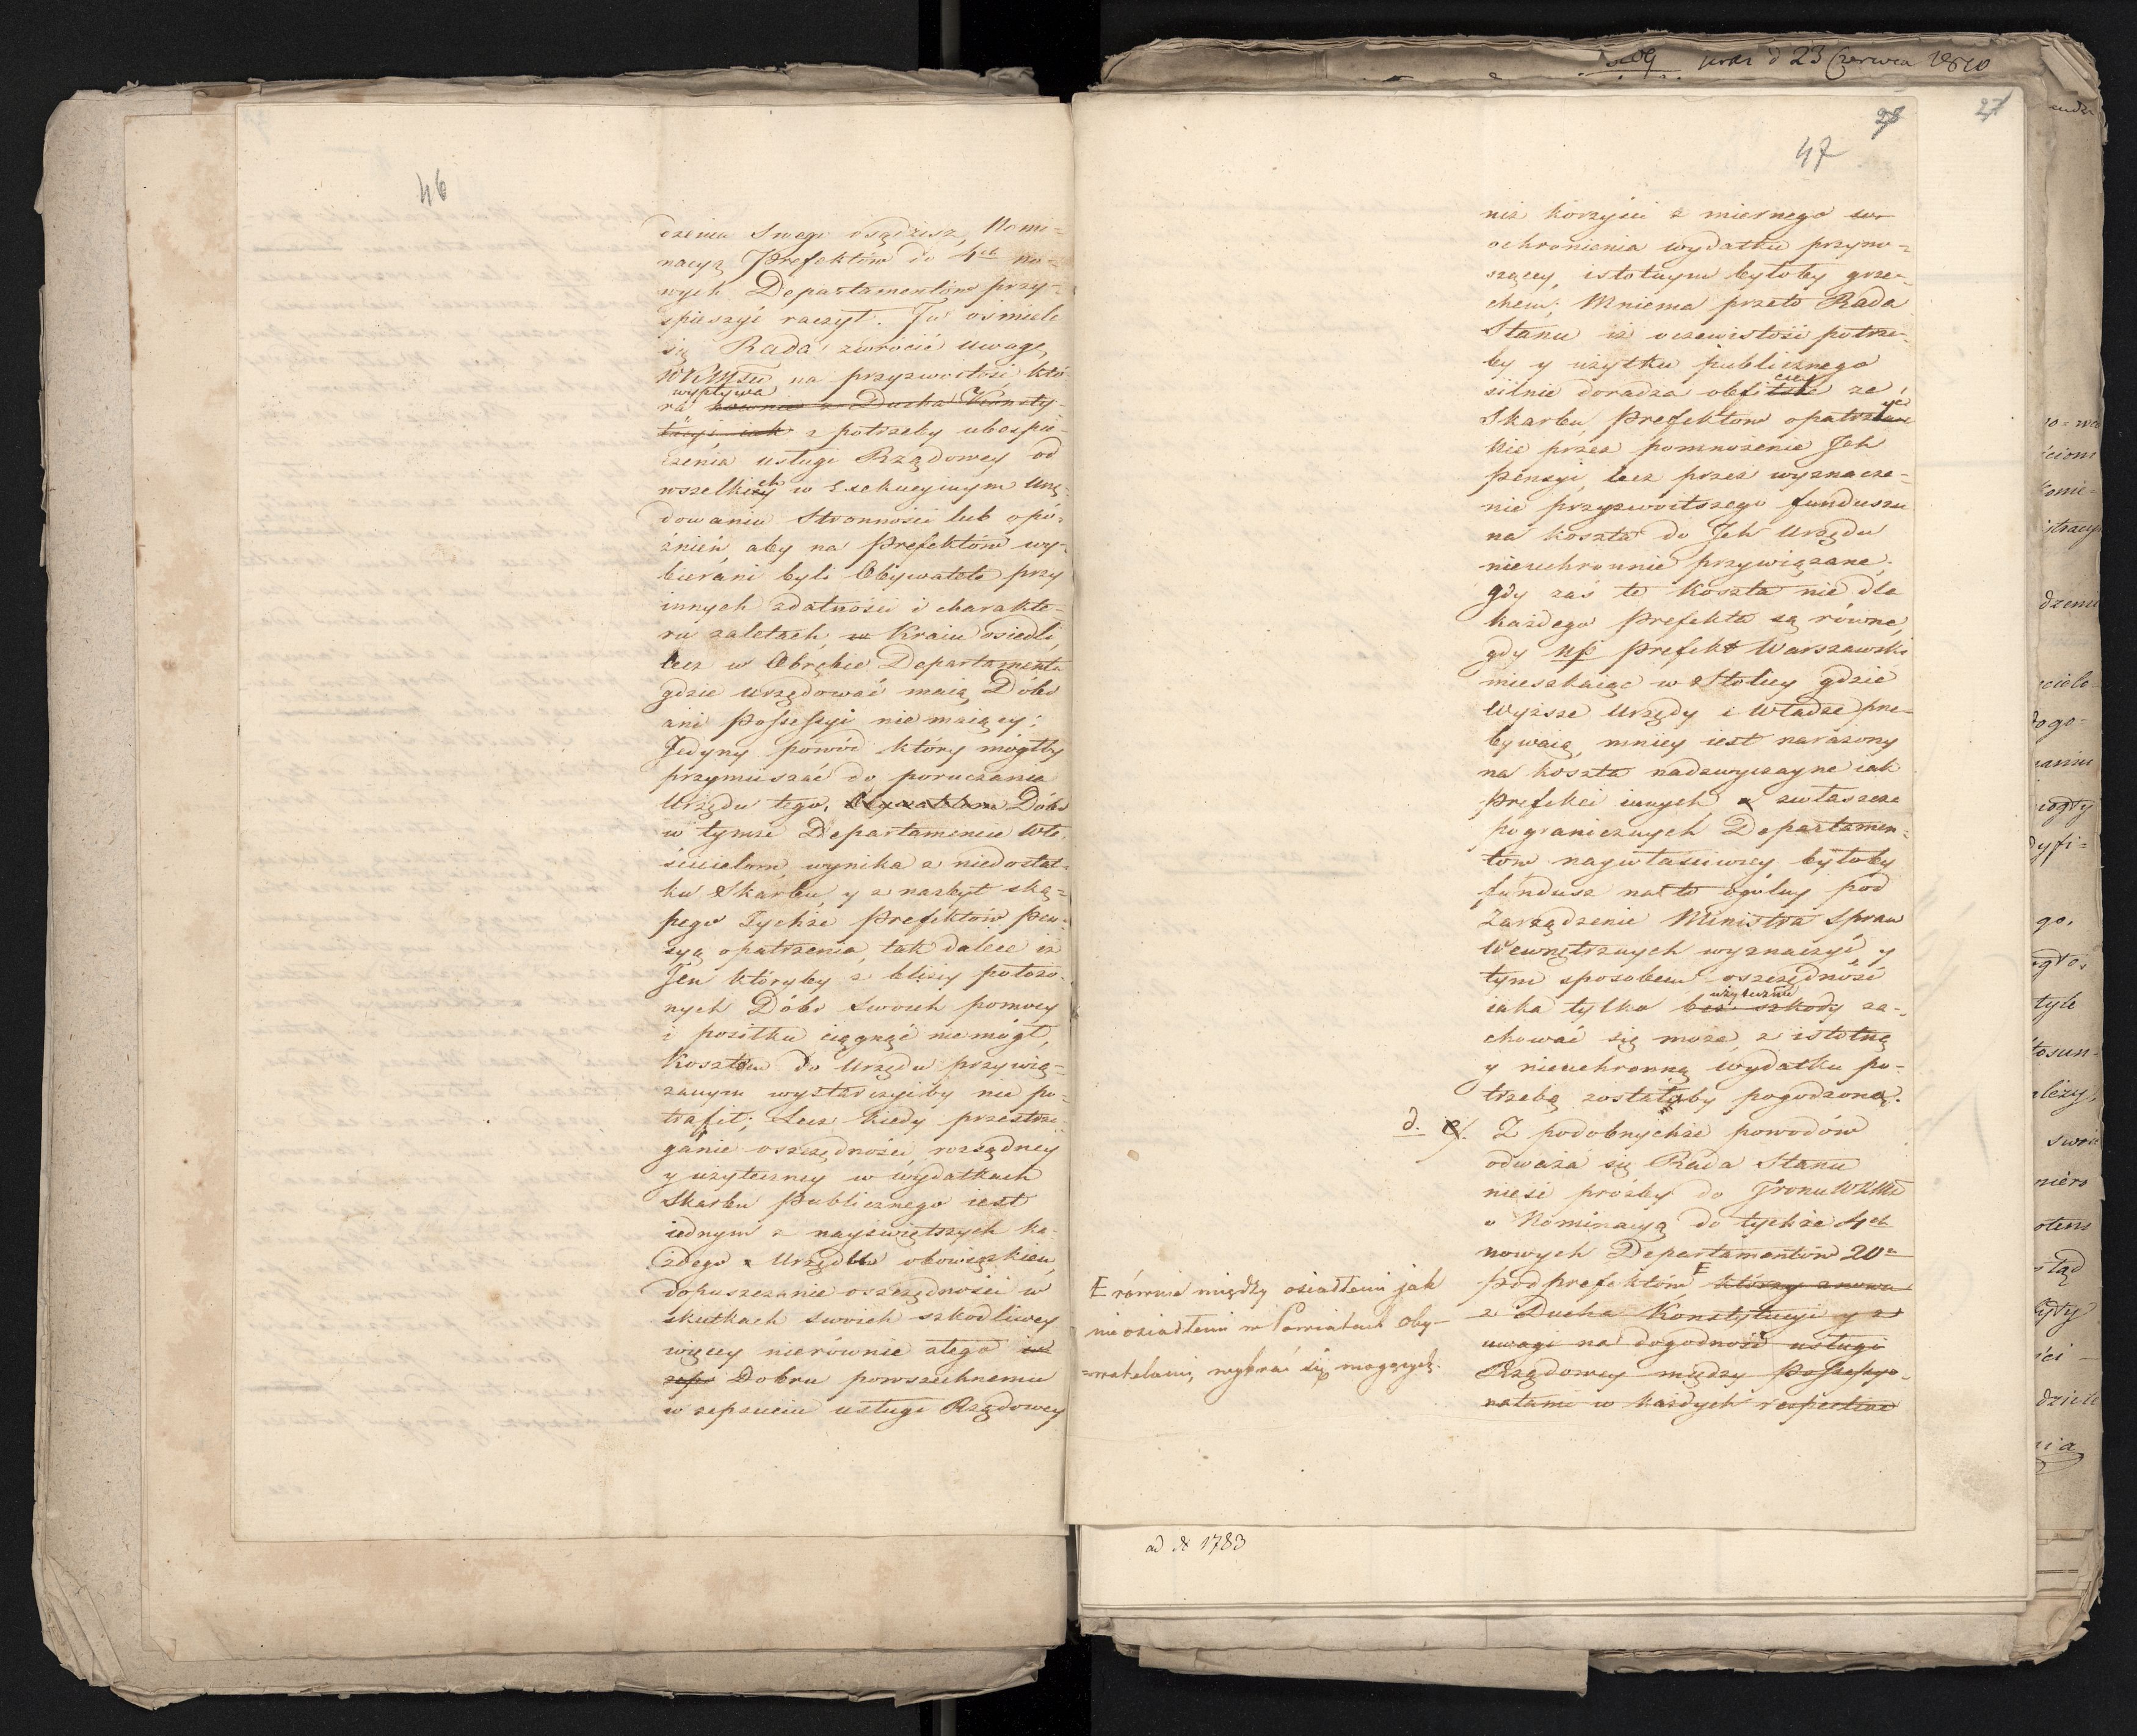 46
dzeniu Swego osądzisz, Nomi=
nacyą Prefektów do 4ch no=
wych Departamentów przy=
spieszyć raczył. Tu ośmiela
się Rada zwrócić uwagę
WKMści na przyzwoitość któ
wypływa
ra równie z Ducha Konsty=
tucyi iak z potrzeby ubespie=
czenia usługi Rządowey od
wszelkich w Exekucyinym Urzę=
dowaniu Stronności lub opó=
źnień, aby na Prefektów wy=
bierani byli Obywatele przy
innych zdatności i charakte=
ru zaletach, w Kraiu osiedli,
lecz w Obrębie Departamentu
gdzie urzędować maią Dóbr
ani Possessyi nie maiący;
Jedyny powód który mógłby
przymuszać do poruczania
Urzędu tego, Obywatelom Dóbr
w tymże Departamencie Wła
ścicielom, wynika z niedostat=
ku Skarbu, y z nazbyt ską=
pego Tychże Prefektów Pen=
syą opatrzenia, tak dalece iż
Ten któryby z bliży położo=
nych Dóbr swoich pomocy
i posiłku ciągnąć nie mógł,
Kosztom do Urzędu przywią=
zanym wystarczyćby nie po=
trafił; Lecz kiedy przestrze=
ganie oszczędności, rozsądney
y użyteczney w wydatkach
Skarbu Publicznego iest
iednym z nayświętszych ka=
żdego Urzędu obowiązkiem,
dopuszczanie oszczędności w
skutkach swoich szkodliwey
więcey nierównie złego
zeps Dobru powszechnemu
w zepsuciu usługi Rządowey
Sog war d 23 Czerwca 1810
27
28
47
niż korzyści z miernego
ochronienia wydatku przyno=
szącey, istotnym byłoby grze=
chem; Mniema przeto Rada
Stanu iż oczewistość potrze=
by y użytku publicznego
silnie doradza obfitsze ze
Skarbu Prefektów opatrzenie
Nie przez pomnożenie Jch
Pensyi, lecz przez wyznacze=
nie przyzwoitszego funduszu
na koszta do Jch Urzędu
nieuchronnie przywiązane;
gdy zaś te Koszta nie dla
każdego Prefekta są równe,
gdy np Prefekt Warszawski
mieszkaiąc w Stolicy gdzie
Wyższe Urzędy i Władze prze=
bywaią, mniey iest narażony
na koszta nadzwyczayne iak
Prefekci innych, a zwłaszcza
pogranicznych Departamen=
tów naywłaściwiey byłoby
fundusz na to ogólny pod
Zarządzenie Ministra Spraw
Wewnętrznych wyznaczyć, y
tym sposobem oszczędność
użytecznie
iaka tylko bez szkody za=
chować się może, z istotną
y nieuchronną wydatku po=
trzebą zostałaby pogodzoną.
d. e/. Z podobnychże powodów
odważa się Rada Stanu
nieść prośby do Tronu WKMci
o Nominacyą do tychże 4ch
nowych Departamentów 20u
Podprefektów którzy znowu
z Ducha Konstytucyi y z
uwagi na dogodność usługi
Rządowey między Possessyo=
natami w każdych respective
E równie między osiadłemi jak
nie osiadłemi w Powiatach Oby=
watelami, wybrać się mogących.
ad N 1783